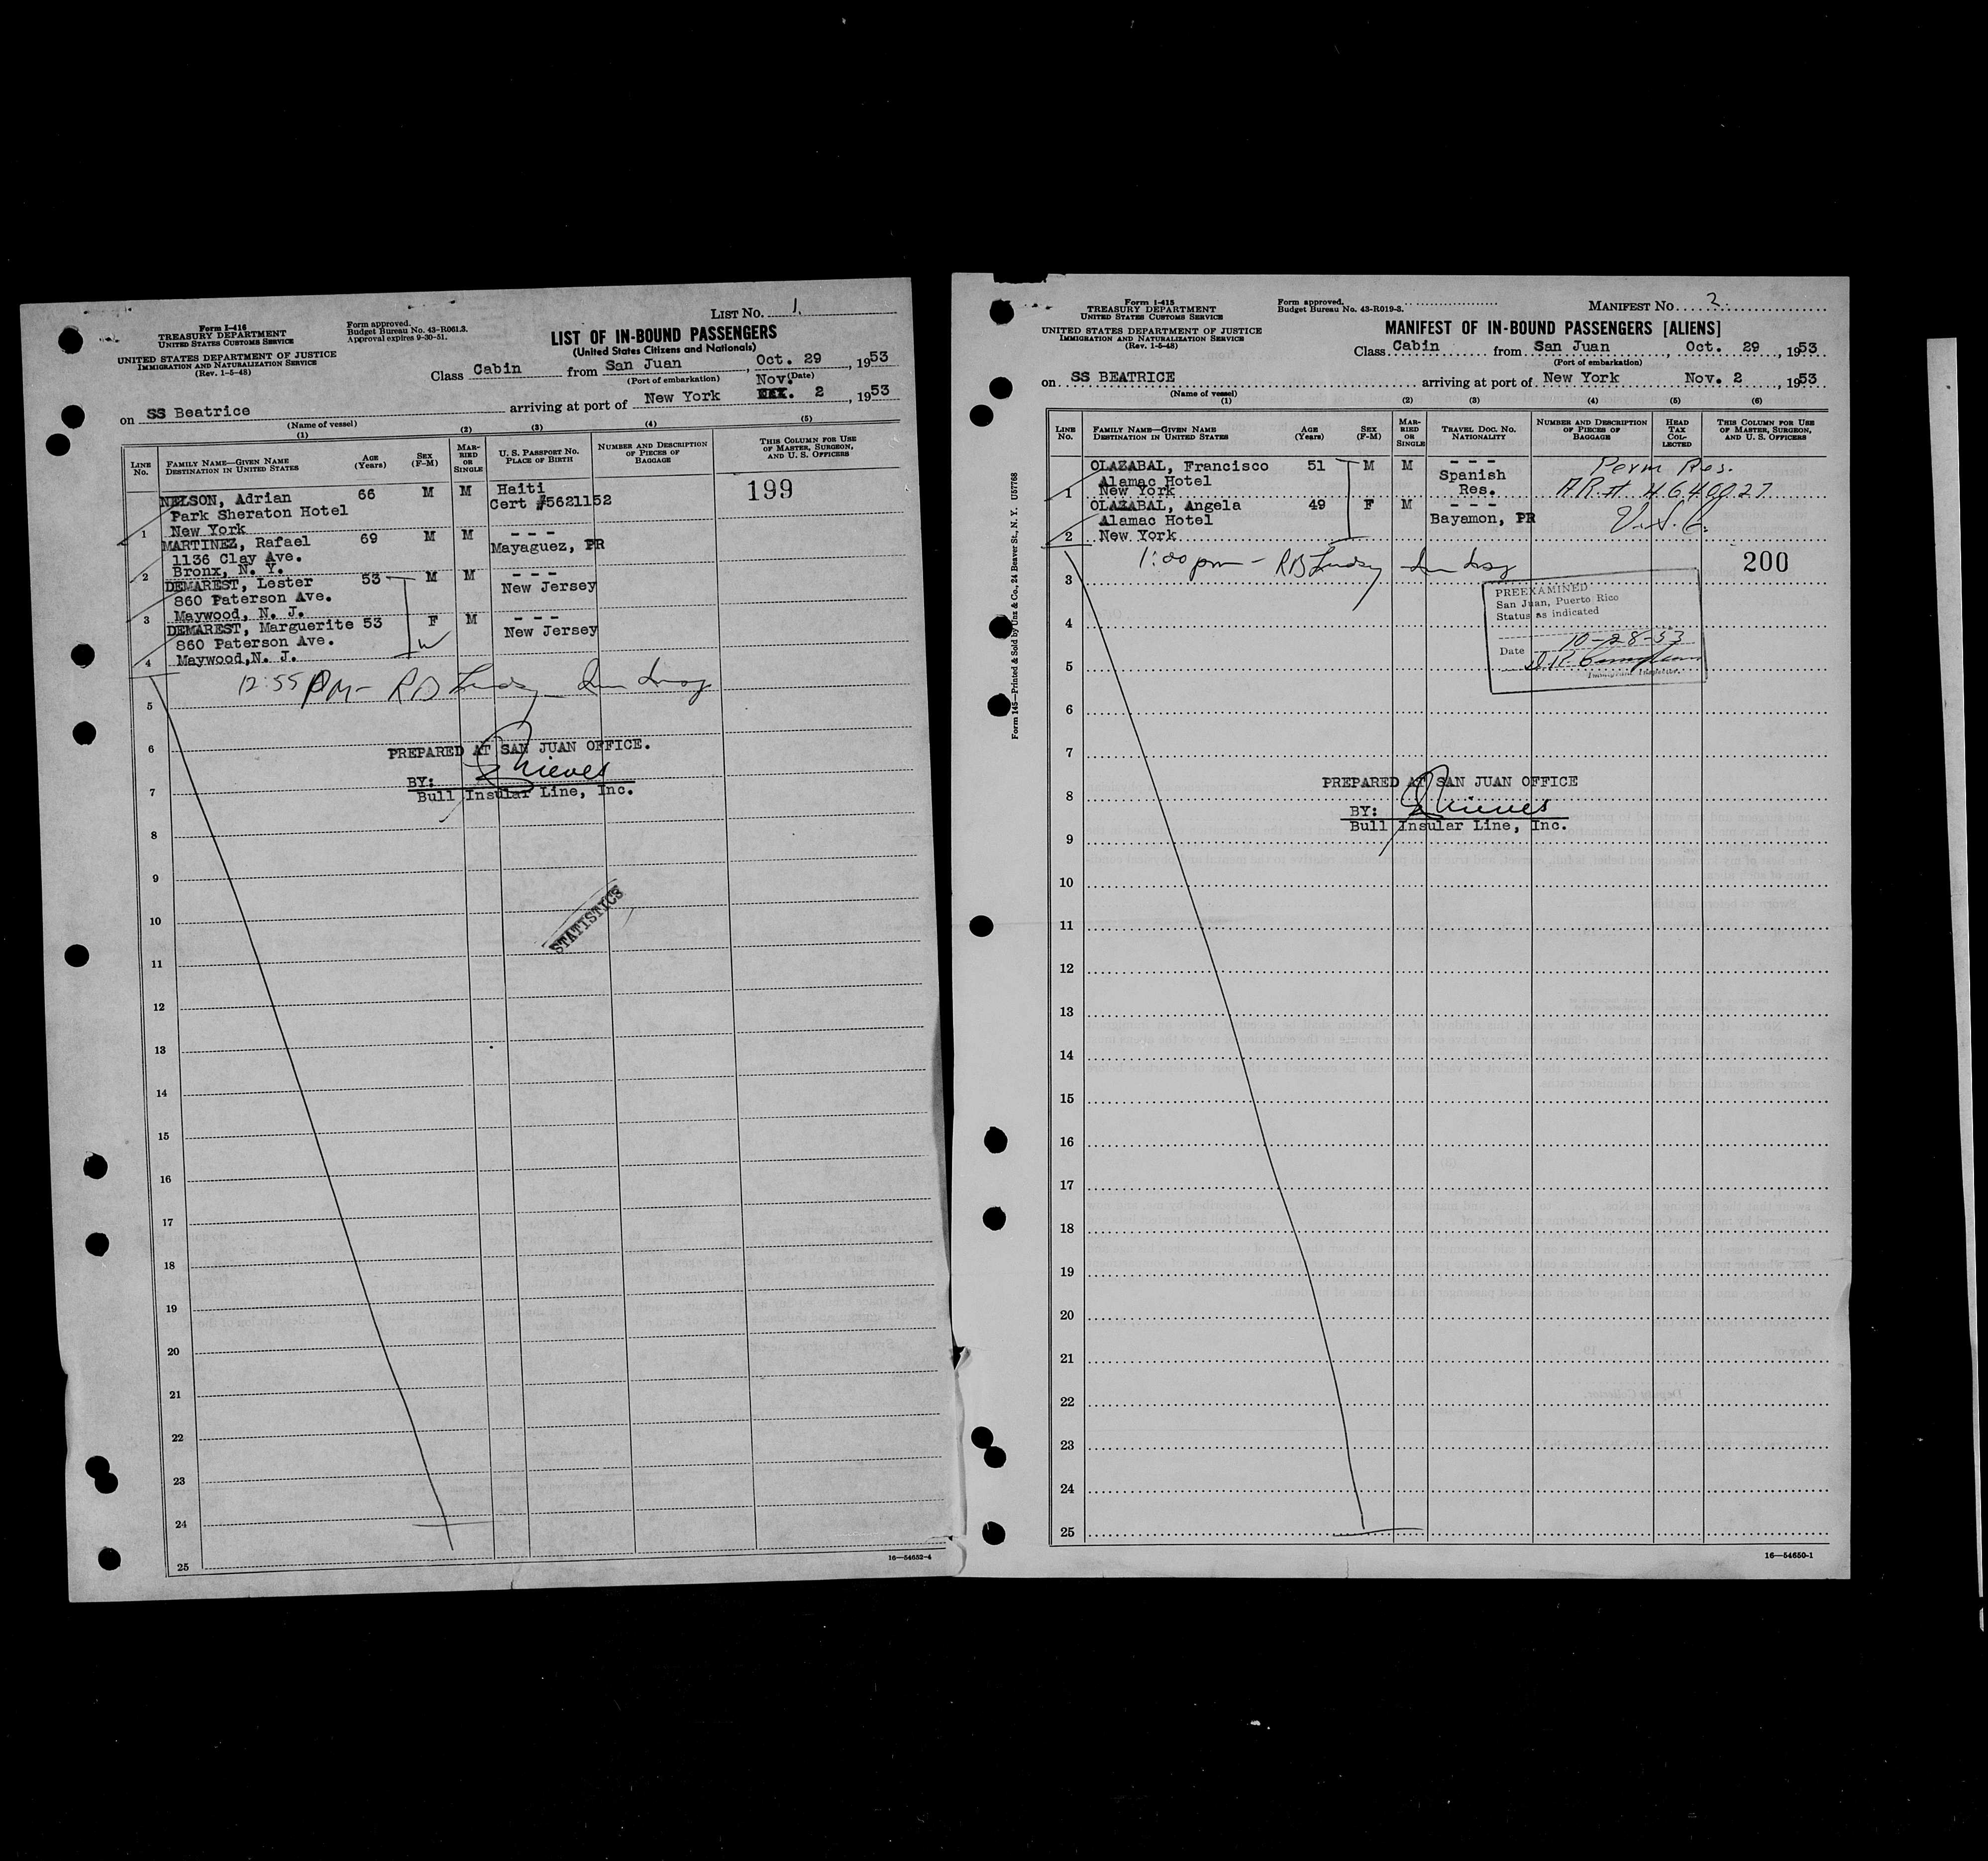 LIST No. 1.
Form I-416
TREASURY DEPARTMENT
UNITED STATES CUSTOMS SERVICE
UNITED STATES DEPARTMENT OF JUSTICE
IMMIGRATION AND NATURALIZATION SERVICE
(Rev. 1-5-48)
Form approved.
Budget Bureau No. 43-R061.3.
Approval expires 9-30-51.
LIST OF IN-BOUND PASSENGERS
(United States Citizens and Nationals)
Class Cabin from San Juan, Oct. 29, 1953
(Port of embarkation) (Date)
on SS Beatrice arriving at port of New York Nov. 2, 1953
(Name of vessel)
(1) (2) (3) (4) (5)
LINE No. FAMILY NAME—GIVEN NAME DESTINATION IN UNITED STATES AGE (Years) SEX (F-M) MARRIED OR SINGLE U. S. PASSPORT No. PLACE OF BIRTH NUMBER AND DESCRIPTION OF PIECES OF BAGGAGE THIS COLUMN FOR USE OF MASTER, SURGEON, AND U. S. OFFICERS
NELSON, Adrian 66 M M Haiti 199
Park Sheraton Hotel Cert #5621152
1 New York
MARTINEZ, Rafael 69 M M - - -
1136 Clay Ave. Mayaguez, PR
2 Bronx, N. Y.
DEMAREST, Lester 53 M M - - -
860 Paterson Ave. New Jersey
3 Maywood, N. J.
DEMAREST, Marguerite 53 F M - - -
860 Paterson Ave. New Jersey
4 Maywood,N. J.
12:55 PM- RB
5
6
PREPARED AT SAN JUAN OFFICE.
BY: Nieves
7
Bull Insular Line, Inc.
8
9
10
STATISTICS
11
12
13
14
15
16
17
18
19
20
21
22
23
24
25
16—54652-4
Form I-415
TREASURY DEPARTMENT
UNITED STATES CUSTOMS SERVICE
UNITED STATES DEPARTMENT OF JUSTICE
IMMIGRATION AND NATURALIZATION SERVICE
(Rev. 1-5-48)
Form approved.
Budget Bureau No. 43-R019-3.
MANIFEST No. 2.
MANIFEST OF IN-BOUND PASSENGERS [ALIENS]
Class Cabin from San Juan, Oct. 29, 1953
(Port of embarkation)
on SS BEATRICE arriving at port of New York Nov. 2, 1953
(Name of vessel)
(1) (2) (3) (4) (5) (6)
LINE No. FAMILY NAME—GIVEN NAME DESTINATION IN UNITED STATES AGE (Years) SEX (F-M) MARRIED OR SINGLE TRAVEL DOC. No. NATIONALITY NUMBER AND DESCRIPTION OF PIECES OF BAGGAGE HEAD TAX COLLECTED THIS COLUMN FOR USE OF MASTER, SURGEON, AND U. S. OFFICERS
OLAZABAL, Francisco 51 M M - - - Perm Res.
Alamac Hotel Spanish
1 New York Res. A.R.# 4640027
OLAZABAL, Angela 49 F M - - -
Alamac Hotel Bayamon, PR U.S.C.
2 New York
1:00 pm - RB
200
3
PREEXAMINED
San Juan, Puerto Rico
Status as indicated
4
Date 10-28-53
5
Immigrant Inspector.
6
7
PREPARED AT SAN JUAN OFFICE
8
BY: Nieves
Bull Insular Line, Inc.
9
10
11
12
13
14
15
16
17
18
19
20
21
22
23
24
25
16—54650-1
Form 145—Printed & Sold by Unz & Co., 24 Beaver St., N. Y. U57768